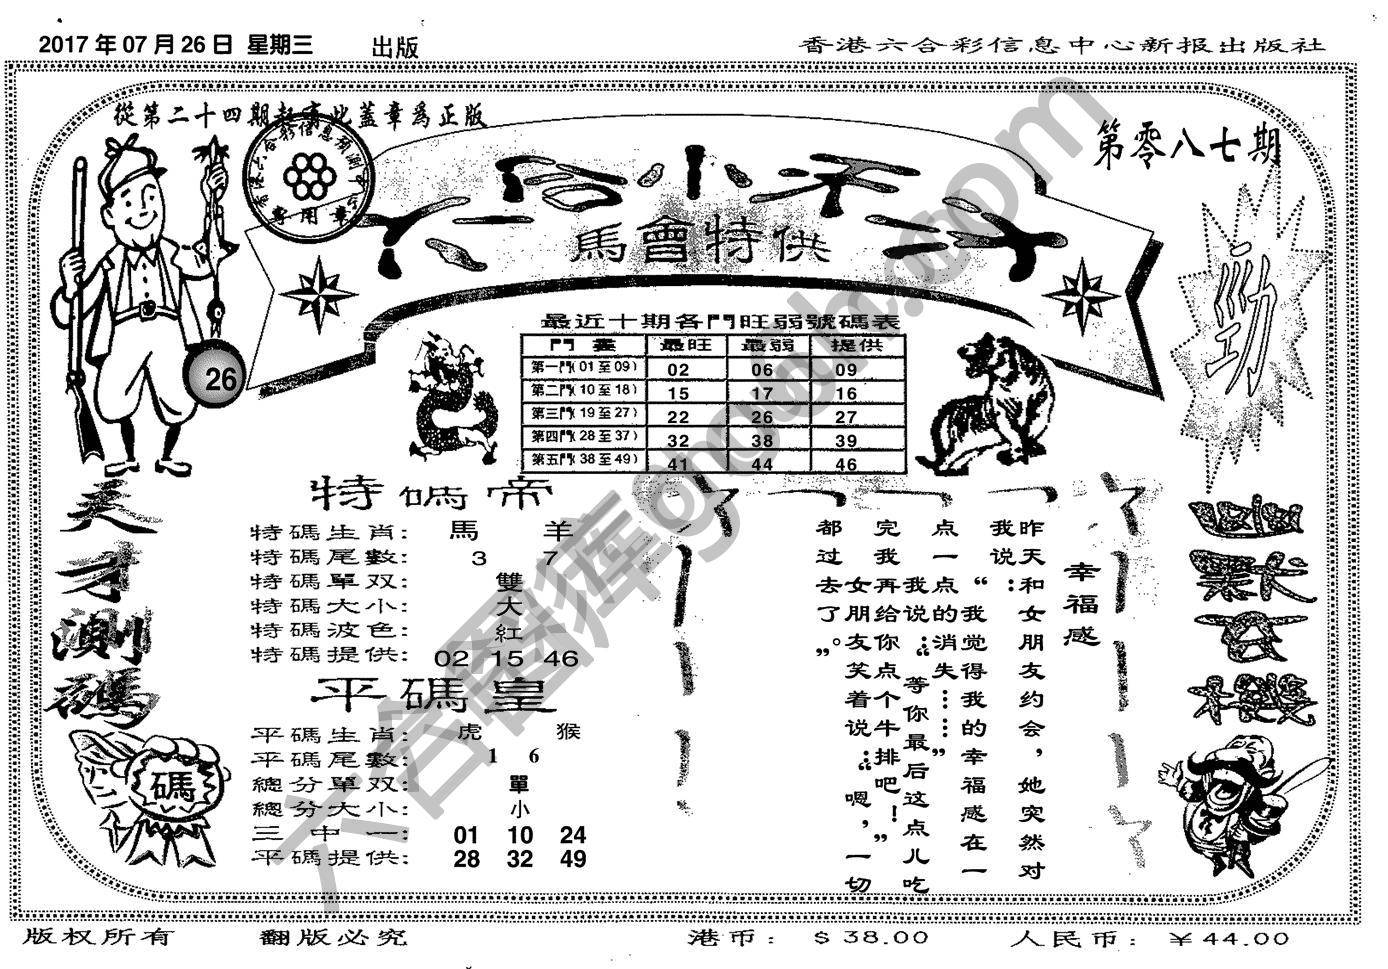 2017 年 07 月 26 日 星期三 出版
香港六合彩信息中心新报出版社
從第二十四期起需此蓋章爲正版
第零八七期
專用章
馬會特供
勁
26
最近十期各門旺弱號碼表
門 最旺 最弱 提供
第一門(01至09) 02 06 09
第二門(10至18) 15 17 16
第三門(19至27) 22 26 27
第四門(28至37) 32 38 39
第五門(38至49) 41 44 46
天才測碼
碼
特碼帝
特碼生肖: 馬 羊
特碼尾數: 3 7
特碼單双: 雙
特碼大小: 大
特碼波色: 紅
特碼提供: 02 15 46
平碼皇
平碼生肖: 虎 猴
平碼尾數: 1 6
總分單双: 單
總分大小: 小
三中一: 01 10 24
平碼提供: 28 32 49
幸福感
昨天和女朋友约会，她突然对
我说：
“我觉得我的幸福感在一
点一点的消失……”
我说：“等你最后这点儿吃
完我再给你点个牛排吧！”
女朋友笑着说：“嗯，一切
都过去了。”
六合图库
版权所有 翻版必究 港币： $ 38.00 人民币： ￥44.00